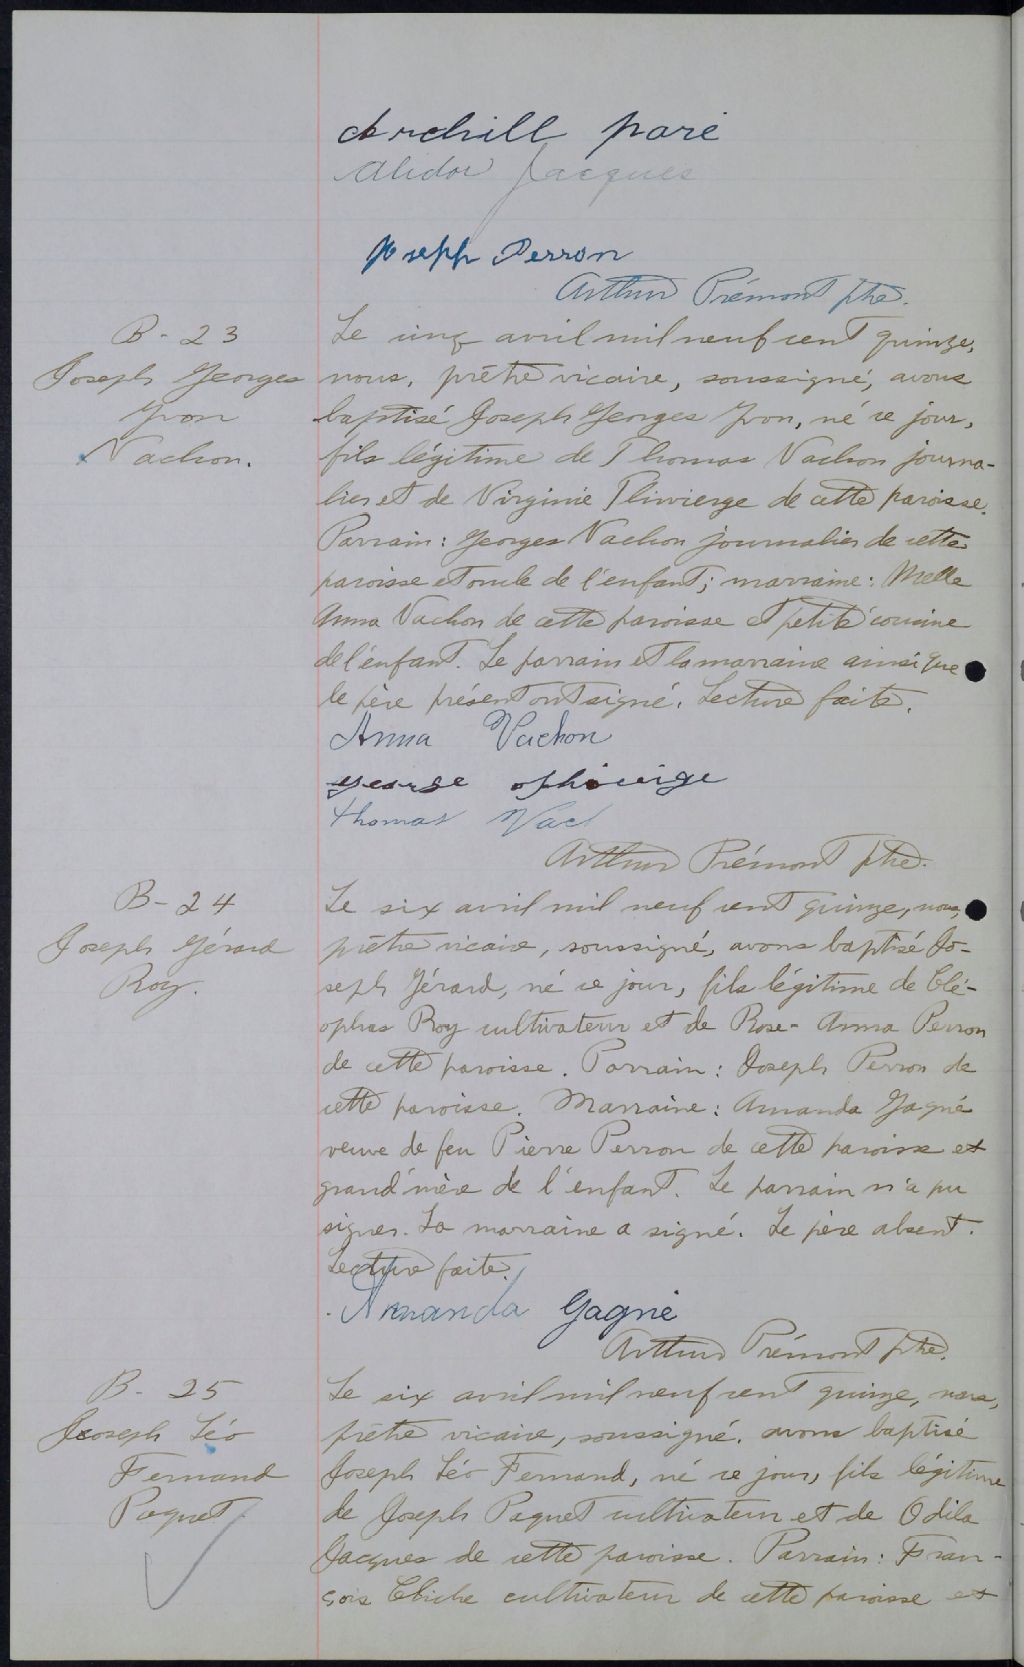 Archill paré
Alidor Jacques
Joseph Perron
Arthur Prémont ptre.
B-23
Joseph Georges
Yvon
Vachon.
Le cinq avril mil neuf cent quinze,
nous, prêtre vicaire, soussigné, avons
baptisé Joseph Georges Yvon, né ce jour,
fils légitime de Thomas Vachon journa-
lier et de Virginie Thivierge de cette paroisse.
Parrain: Georges Vachon journalier de cette
paroisse et oncle de l'enfant; marraine: Melle
Anna Vachon de cette paroisse et petite cousine
de l'enfant. Le parrain et la marraine ainsi que
le père présent ont signé. Lecture faite.
Anna Vachon
George
thomas Vach
Arthur Prémont ptre.
B-24
Joseph Gérard
Roy.
Le six avril mil neuf cent quinze, nous,
prêtre vicaire, soussigné, avons baptisé Jo-
seph Gérard, né ce jour, fils légitime de Clé-
ophas Roy cultivateur et de Rose-Anna Perron
de cette paroisse. Parrain: Joseph Perron de
cette paroisse. Marraine: Amanda Gagné
veuve de feu Pierre Perron de cette paroisse et
grand'mère de l'enfant. Le parrain n'a pu
signer. La marraine a signé. Le père absent.
Lecture faite.
Amanda Gagné
Arthur Prémont ptre.
B-25
Joseph Léo
Fernand
Paquet.
Le six avril mil neuf cent quinze, nous,
prêtre vicaire, soussigné, avons baptisé
Joseph Léo Fernand, né ce jour, fils légitime
de Joseph Paquet cultivateur et de Odila
Jacques de cette paroisse. Parrain: Fran-
çois Cliche cultivateur de cette paroisse et